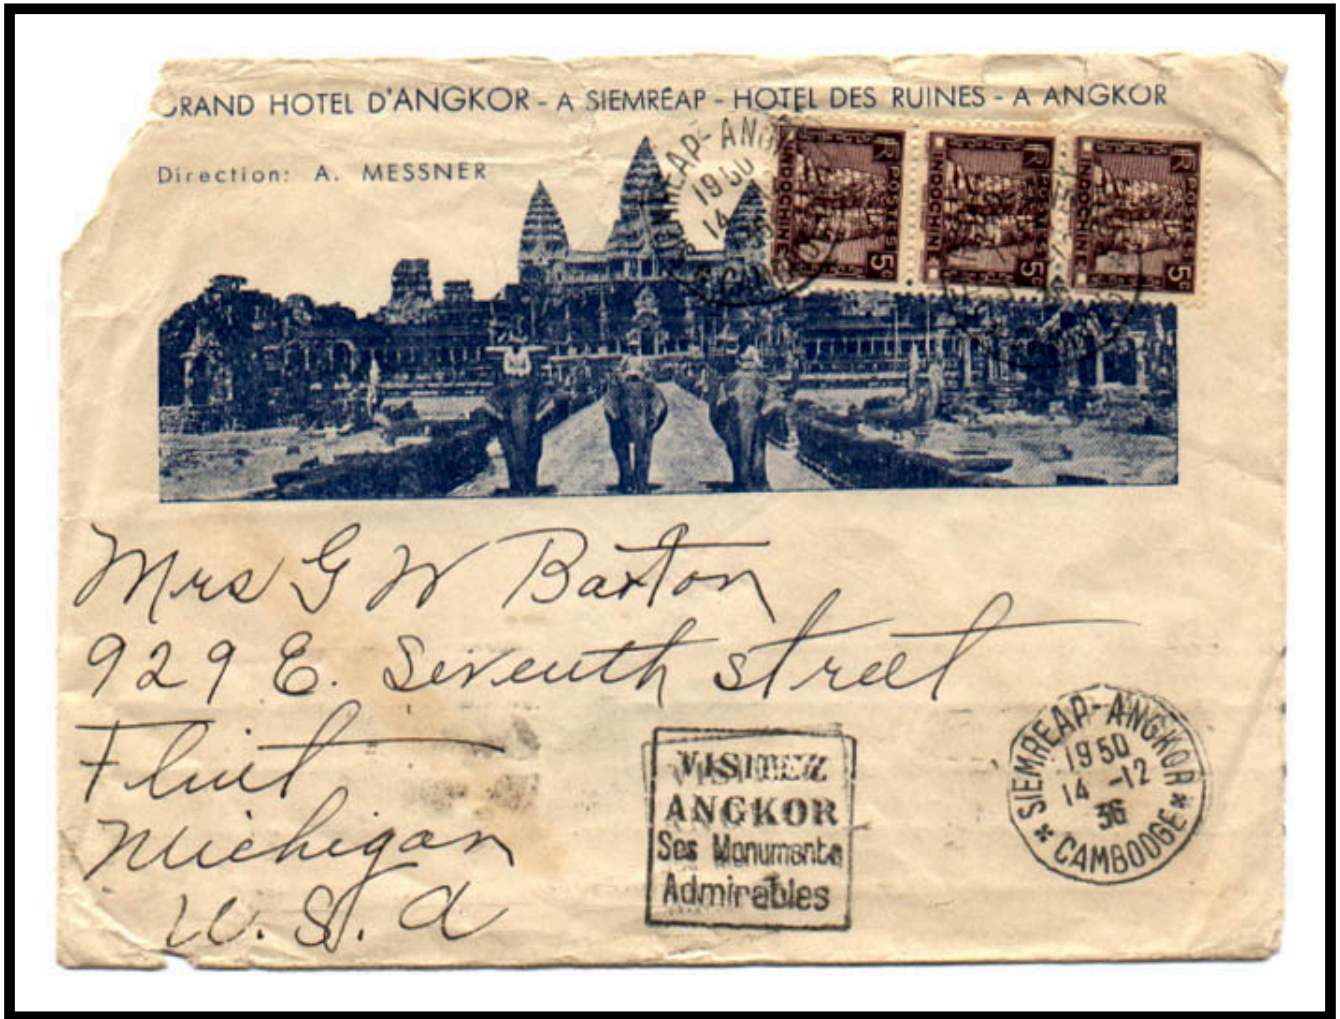 GRAND HOTEL D'ANGKOR - A SIEMRÉAP - HOTEL DES RUINES - A ANGKOR
Direction: A. MESSNER
SIEMREAP-ANGKOR
1950
14
36
CAMBODGE
RF POSTES
INDOCHINE
5c
RF POSTES
INDOCHINE
5c
RF POSTES
INDOCHINE
5c
Mrs G W Barton
929 E. Seventh street
Flint
Michigan
U.S.A
VISITEZ
ANGKOR
Ses Monuments
Admirables
SIEMREAP-ANGKOR
1950
14 -12
36
* CAMBODGE *